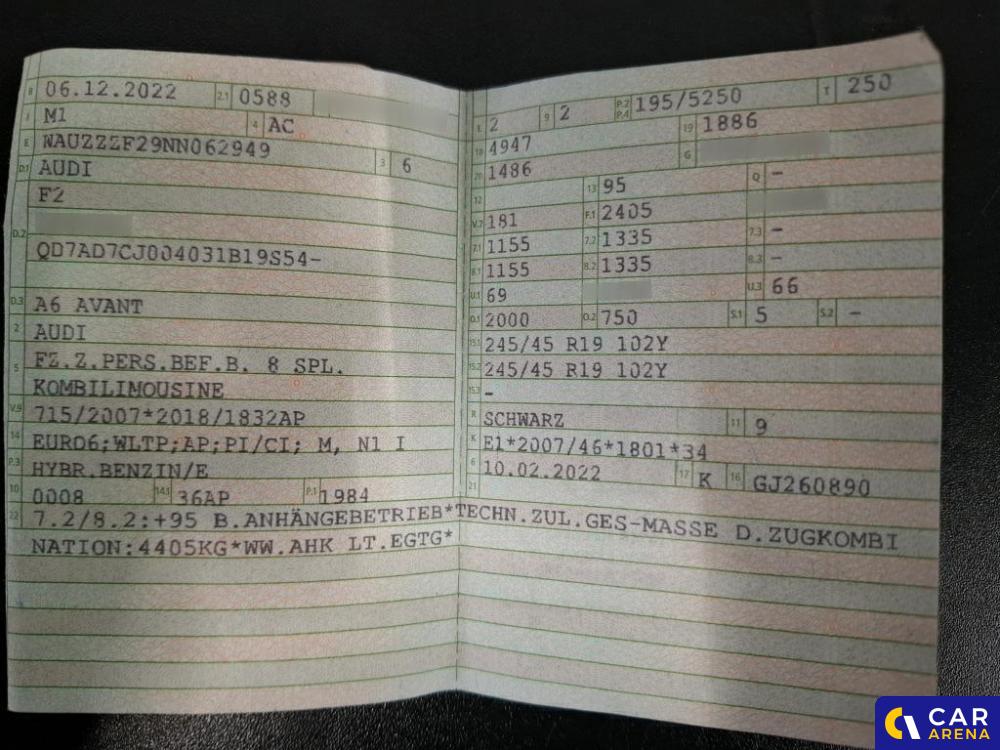 B 06.12.2022 2.1 0588
J M1 4 AC
E WAUZZZF29NN062949
D.1 AUDI 3 6
F2
D.2
QD7AD7CJ004031B19S54-
D.3 A6 AVANT
2 AUDI
5 FZ.Z.PERS.BEF.B. 8 SPL.
KOMBILIMOUSINE
V.9 715/2007*2018/1832AP
14 EURO6;WLTP;AP;PI/CI; M, N1 I
P.3 HYBR.BENZIN/E
10 0008 14.1 36AP P.1 1984
L 2 9 2 P.2 P.4 195/5250 T 250
18 4947 19 1886
20 1486 G
12 13 95 Q -
V.7 181 F.1 2405
7.1 1155 7.2 1335 7.3 -
8.1 1155 8.2 1335 8.3 -
U.1 69 U.3 66
O.1 2000 O.2 750 S.1 5 S.2 -
15.1 245/45 R19 102Y
15.2 245/45 R19 102Y
15.3 -
R SCHWARZ 11 9
K E1*2007/46*1801*34
6 10.02.2022 17 K 16 GJ260890
21
22 7.2/8.2:+95 B.ANHÄNGEBETRIEB*TECHN.ZUL.GES-MASSE D.ZUGKOMBI
NATION:4405KG*WW.AHK LT.EGTG*
CAR
ARENA